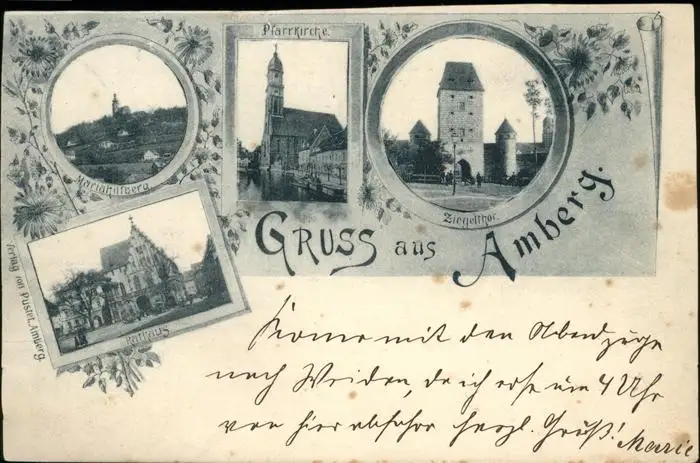 Pfarrkirche.
Mariahilfberg
Ziegelthor.
GRUSS aus Amberg.
Rathaus
Verlag von Pustet, Amberg.
Komme mit den Abendzuge
nach Weiden, da ich erst um 4 Uhr
von hier abfahr herzl. Gruß!
Marie